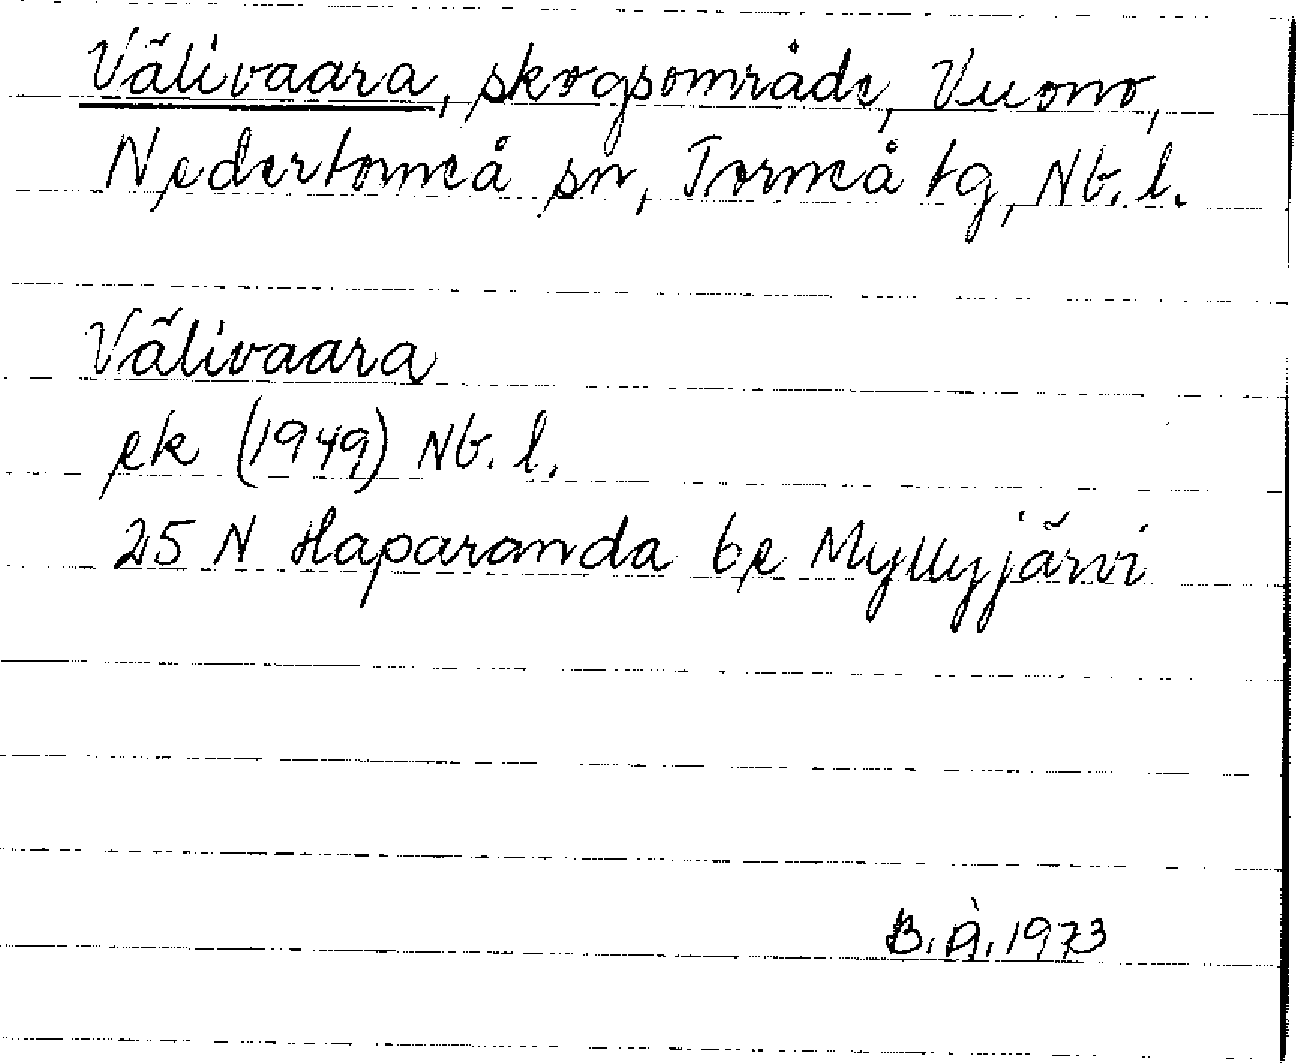 Välivaara, skogsområde, Vuono,
Nedertorneå sn, Torneå tg, Nb. l.
Välivaara
ek (1949) Nb. l.
25 N Haparanda be Myllyjärvi
B.Å. 1973